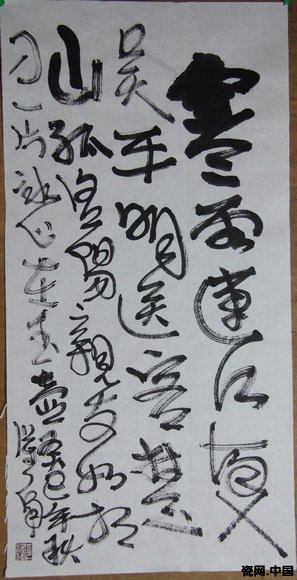 寒雨連江夜入
吳平明送客楚
山孤洛陽親友如相
问一片冰心在玉壺癸巳年秋
瓷网.中国